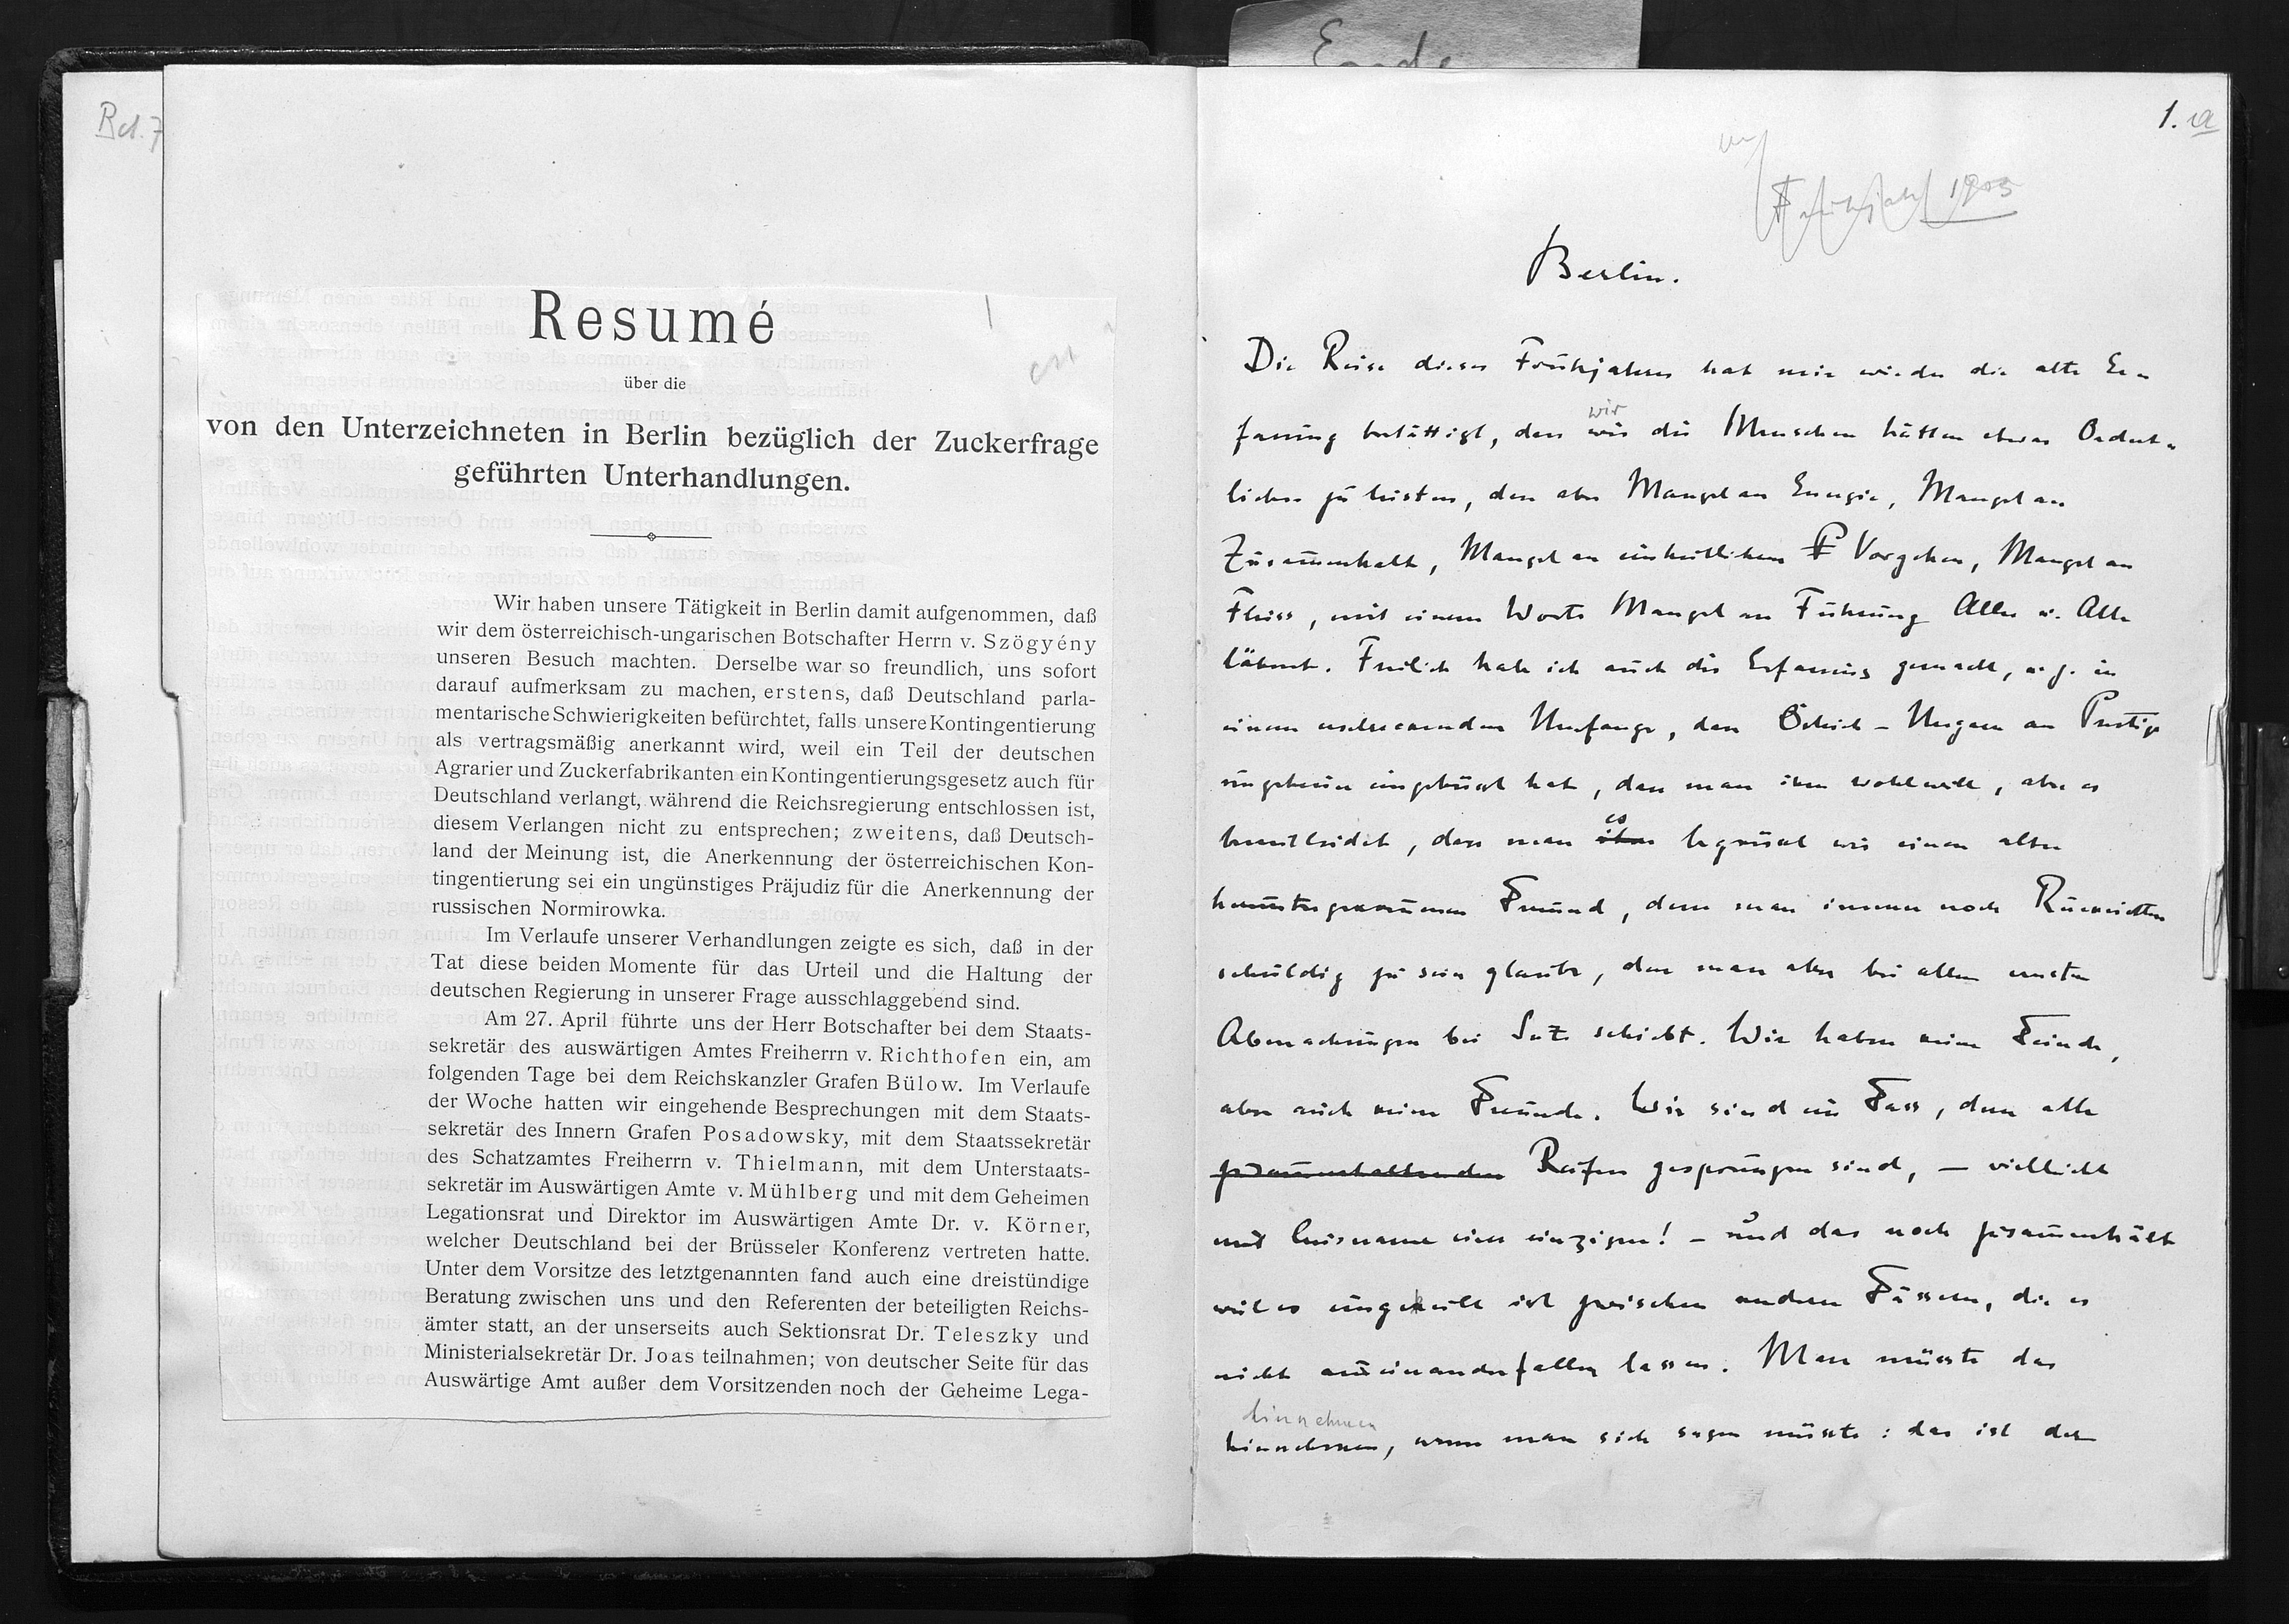 Bd. 7
Resumé
über die
von den Unterzeichneten in Berlin bezüglich der Zuckerfrage
geführten Unterhandlungen.
Wir haben unsere Tätigkeit in Berlin damit aufgenommen, daß
wir dem österreichisch-ungarischen Botschafter Herrn v. Szögyény
unseren Besuch machten. Derselbe war so freundlich, uns sofort
darauf aufmerksam zu machen, erstens, daß Deutschland parla-
mentarische Schwierigkeiten befürchtet, falls unsere Kontingentierung
als vertragsmäßig anerkannt wird, weil ein Teil der deutschen
Agrarier und Zuckerfabrikanten ein Kontingentierungsgesetz auch für
Deutschland verlangt, während die Reichsregierung entschlossen ist,
diesem Verlangen nicht zu entsprechen; zweitens, daß Deutsch-
land der Meinung ist, die Anerkennung der österreichischen Kon-
tingentierung sei ein ungünstiges Präjudiz für die Anerkennung der
russischen Normirowka.
Im Verlaufe unserer Verhandlungen zeigte es sich, daß in der
Tat diese beiden Momente für das Urteil und die Haltung der
deutschen Regierung in unserer Frage ausschlaggebend sind.
Am 27. April führte uns der Herr Botschafter bei dem Staats-
sekretär des auswärtigen Amtes Freiherrn v. Richthofen ein, am
folgenden Tage bei dem Reichskanzler Grafen Bülow. Im Verlaufe
der Woche hatten wir eingehende Besprechungen mit dem Staats-
sekretär des Innern Grafen Posadowsky, mit dem Staatssekretär
des Schatzamtes Freiherrn v. Thielmann, mit dem Unterstaats-
sekretär im Auswärtigen Amte v. Mühlberg und mit dem Geheimen
Legationsrat und Direktor im Auswärtigen Amte Dr. v. Körner,
welcher Deutschland bei der Brüsseler Konferenz vertreten hatte.
Unter dem Vorsitze des letztgenannten fand auch eine dreistündige
Beratung zwischen uns und den Referenten der beteiligten Reichs-
ämter statt, an der unserseits auch Sektionsrat Dr. Teleszky und
Ministerialsekretär Dr. Joas teilnahmen; von deutscher Seite für das
Auswärtige Amt außer dem Vorsitzenden noch der Geheime Lega-
Ende
1. a
Frühjahr 1903
Berlin.
Die Reise dieses Frühjahres hat mir wieder die alte Er-
farung bestättigt, dass wir die Menschen hätten etwas Ordent-
liches zu leisten, dass aber Mangel an Energie, Mangel an
Zusammenhalt, Mangel an einheitlichem Vorgehen, Mangel an
Fleiss, mit einem Worte Mangel an Führung Alles u. Alle
lähmt. Freilich habe ich auch die Erfarung gemacht, u. z. in
einem erschreckenden Umfange, dass Östreich-Ungarn an Prestige
ungeheuer eingebüsst hat, dass man ihm wohlwill, aber es
bemitleidet, dass man es begrüsst wie einen alten
heruntergekommenen Freund, dem man immer noch Rücksichten
schuldig zu sein glaubt, den man aber bei allen ernsten
Abmachungen bei Seite schiebt. Wir haben keine Feinde,
aber auch keine Freunde. Wir sind ein Fass, dem alle
zusammenhaltenden Reifen gesprungen sind, – vielleicht
mit Ausname eines einzigen! – und das noch zusammenhält
weil es eingekeilt ist zwischen andern Fässern, die es
nicht auseinanderfallen lassen. Man müsste das
hinnehmen
hinnehmen, wenn man sich sagen müsste: das ist der